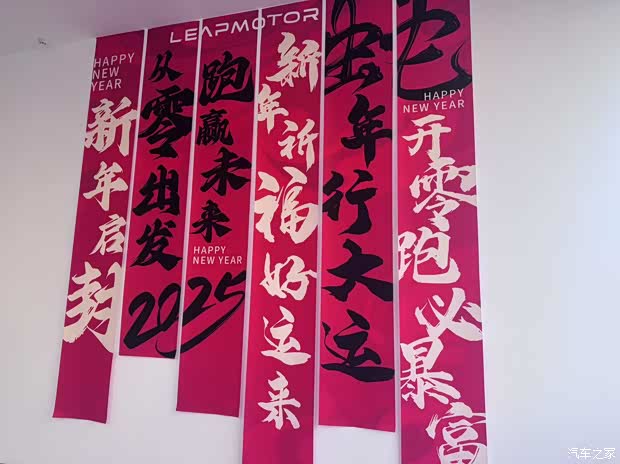 LEAPMOTOR
HAPPY
NEW
YEAR
新年启封
从零出发
跑赢未来
HAPPY
NEW YEAR
2025
新年祈福好运来
蛇年行大运
HAPPY
NEW YEAR
开零跑必暴富
汽车之家